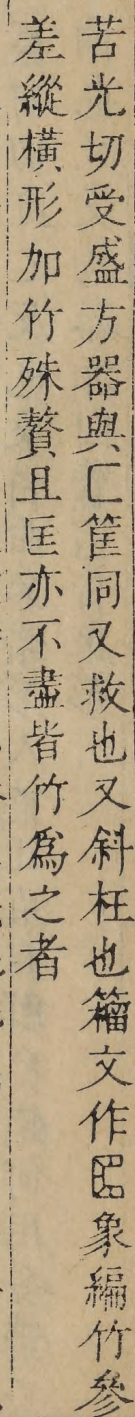 苦光切受盛方器與匚筐同又救也又斜枉也籒文作象編竹參
差縱橫形加竹殊贅且匡亦不盡皆竹爲之者